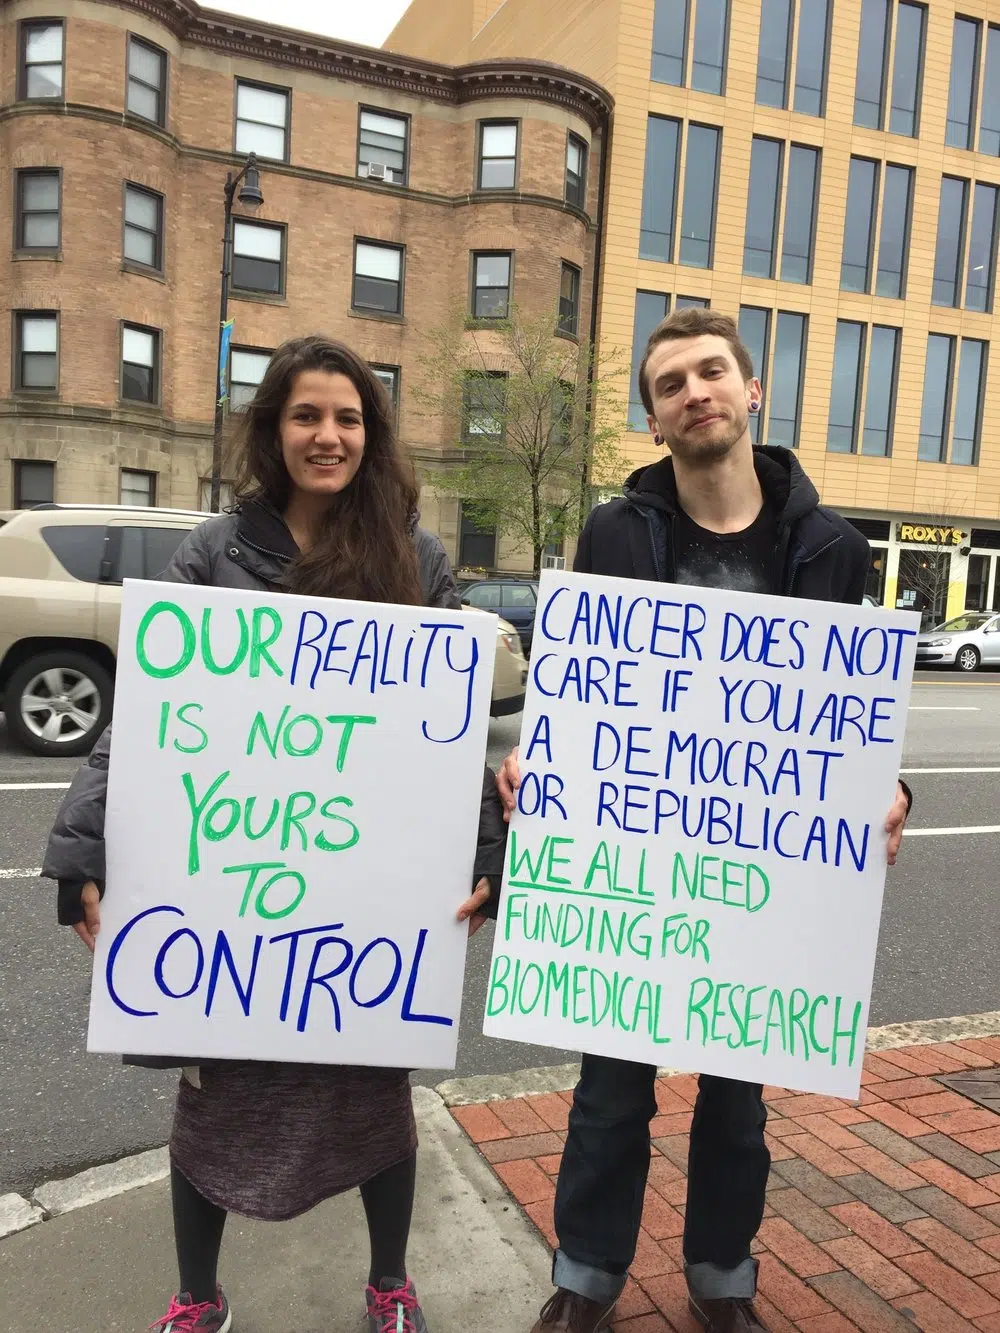 ROXY'S
OUR REALITY
IS NOT
YOURS
TO
CONTROL
CANCER DOES NOT
CARE IF YOU ARE
A DEMOCRAT
OR REPUBLICAN
WE ALL NEED
FUNDING FOR
BIOMEDICAL RESEARCH